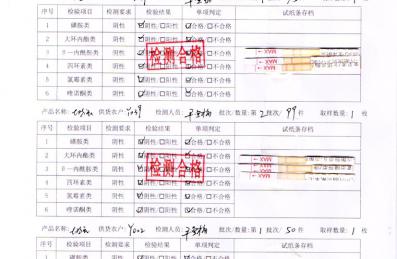 序号 检验项目 检测要求 检验结果 单项判定 试纸条存档
1 磺胺类 阴性 ☑阴性/□阳性 ☑合格/□不合格
2 大环内酯类 阴性 ☑阴性/□阳性 ☑合格/□不合格
3 β-内酰胺类 阴性 阳性 ☑合格/□不合格
4 四环素类 阴性 阳性 ☑合格/□不合格
5 氯霉素类 阴性 ☑阴性/□阳性 ☑合格/□不合格
6 喹诺酮类 阴性 ☑阴性/□阳性 ☑合格/□不合格
检测合格
MAX
MAX
产品名称: 供货农户: 检测人员: 批次/数量:第2批次/99件 取样数量:1枚
序号 检验项目 检测要求 检验结果 单项判定 试纸条存档
1 磺胺类 阴性 ☑阴性/□阳性 ☑合格/□不合格
2 大环内酯类 阴性 阳性 ☑合格/□不合格
3 β-内酰胺类 阴性 阳性 ☑合格/□不合格
4 四环素类 阴性 ☑阴性/□阳性 ☑合格/□不合格
5 氯霉素类 阴性 ☑阴性/□阳性 ☑合格/□不合格
6 喹诺酮类 阴性 ☑阴性/□阳性 ☑合格/□不合格
检测合格
MAX
MAX
产品名称: 供货农户: 检测人员: 批次/数量:第1批次/50件 取样数量:1枚
序号 检验项目 检测要求 检验结果 单项判定 试纸条存档
1 磺胺类 阴性 ☑阴性/□阳性 ☑合格/□不合格